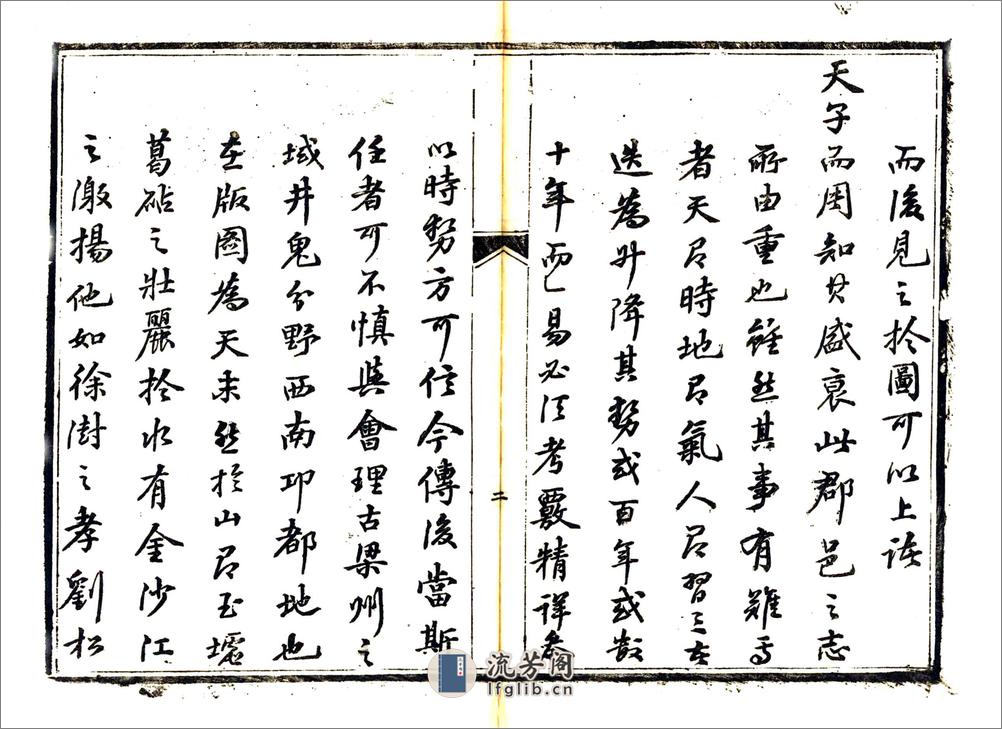 而後見之於圖可以上諸
天子而周知其盛衰此郡邑之志
所由重也雖然其事有難焉
者天有時地有氣人有習三者
迭為升降其勢或百年或數
十年而已易必須考覈精詳參
二
以時勢方可信今傳後當斯
任者可不慎與會理古梁州之
域井鬼分野西南邛都地也
在版圖為天末然於山有玉墟
葛砧之壯麗於水有金沙江
之激揚他如徐澍之孝劉松
流芳阁
lfglib.cn